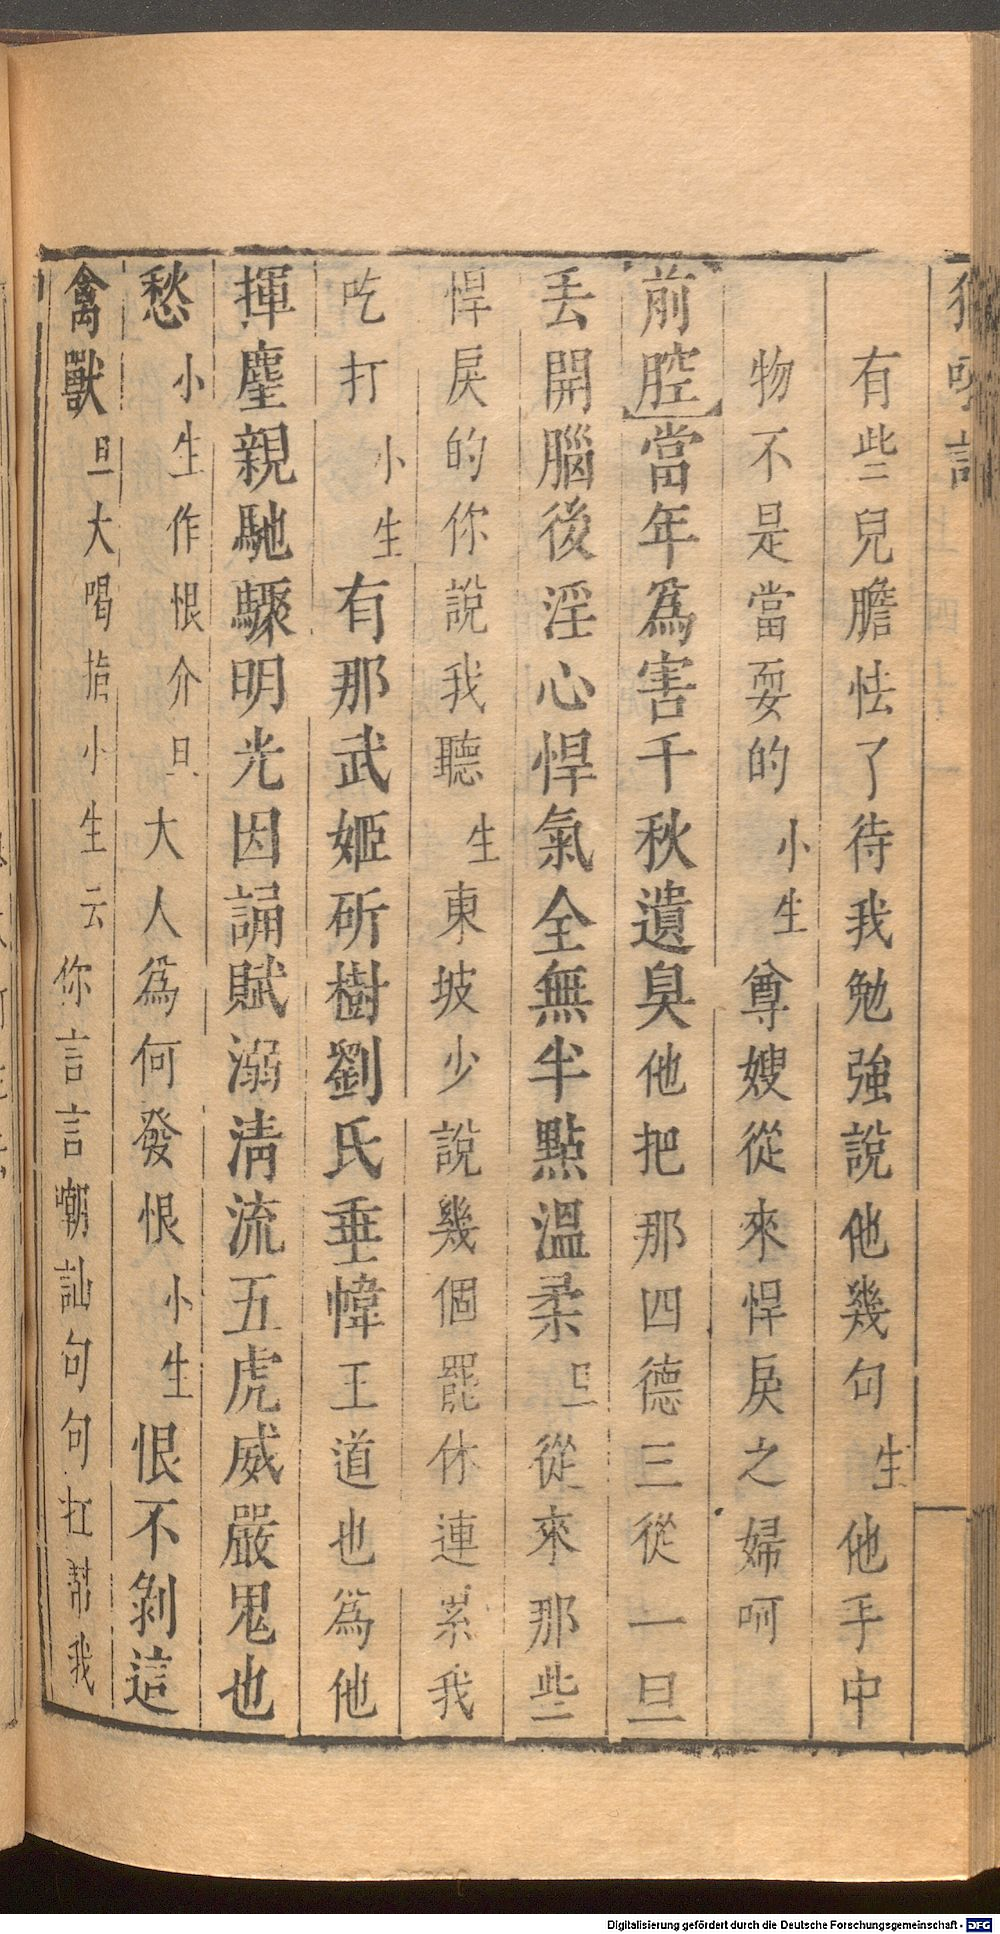 獅吼記
有些兒膽怯了待我勉強說他幾句生他手中
物不是當耍的小生尊嫂從來悍戾之婦呵
前腔當年爲害千秋遺臭他把那四德三從一旦
丟開腦後淫心悍氣全無半點溫柔旦從來那些
悍戾的你說我聽生東坡少說幾個罷休連累我
吃打小生有那武姬斫樹劉氏垂幃王道也爲他
揮麈親馳驟明光因誦賦溺清流五虎威嚴鬼也
愁小生作恨介旦大人爲何發恨小生恨不剝這
禽獸旦大喝掐小生云你言言嘲訕句句扛幫我
Digitalisierung gefördert durch die Deutsche Forschungsgemeinschaft - DFG